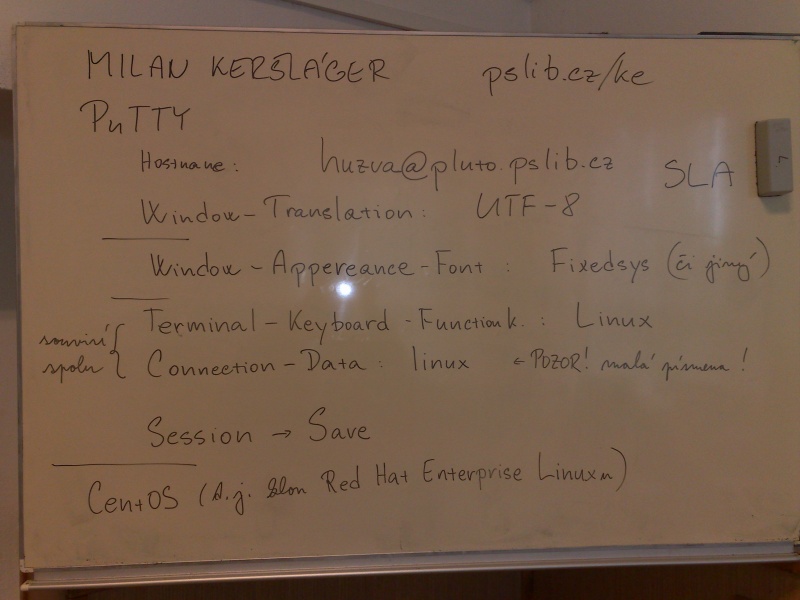 MILAN KERSLÁGER pslib.cz/ke
PuTTY
Hostname: huzva@pluto.pslib.cz
SLA
Window - Translation: UTF-8
Window - Appereance - Font : Fixedsys (či jiný)
Terminal - Keyboard - Function k. : Linux
souvisí spolu { Connection - Data : linux ← POZOR! malá písmena!
Session → Save
CentOS (t.j. klon Red Hat Enterprise Linuxu)